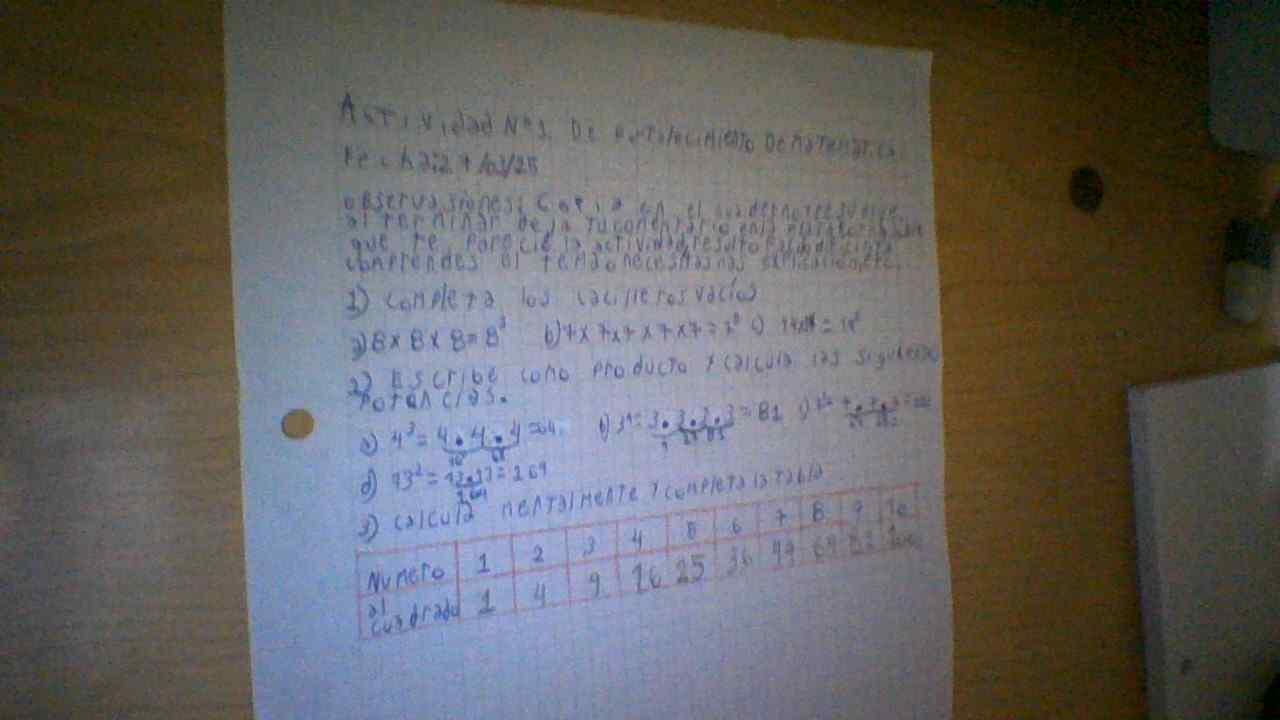 Actividad N°1. De Fortalecimiento De Matemática
Fecha: 27/03/25
observasiones: Copia en el cuaderno resuelve
al terminar deja tu comentario en la plataforma sobre
que te parecie la actividad resulto facil o dificil
comprendes el tema o necesitas mas explicacion, etc.
1) completa los cacilleros vacíos
a) 8 x 8 x 8 = 8³ b) 7 x 7 x 7 x 7 x 7 = 7 c) = 14²
2) Escribe como producto y calcula las siguientes
potencias.
a) 4³ = 4 . 4 . 4 = 64. b) 3⁴ = 3 . 3 . 3 . 3 = 81 c)
16 64 9 27 81
d) 13² = 13 . 13 = 169
169
3) calcula mentalmente y completa la tabla
Numero 1 2 3 4 5 6 7 8 9 10
al cuadrado 1 4 9 16 25 36 49 64 81 100